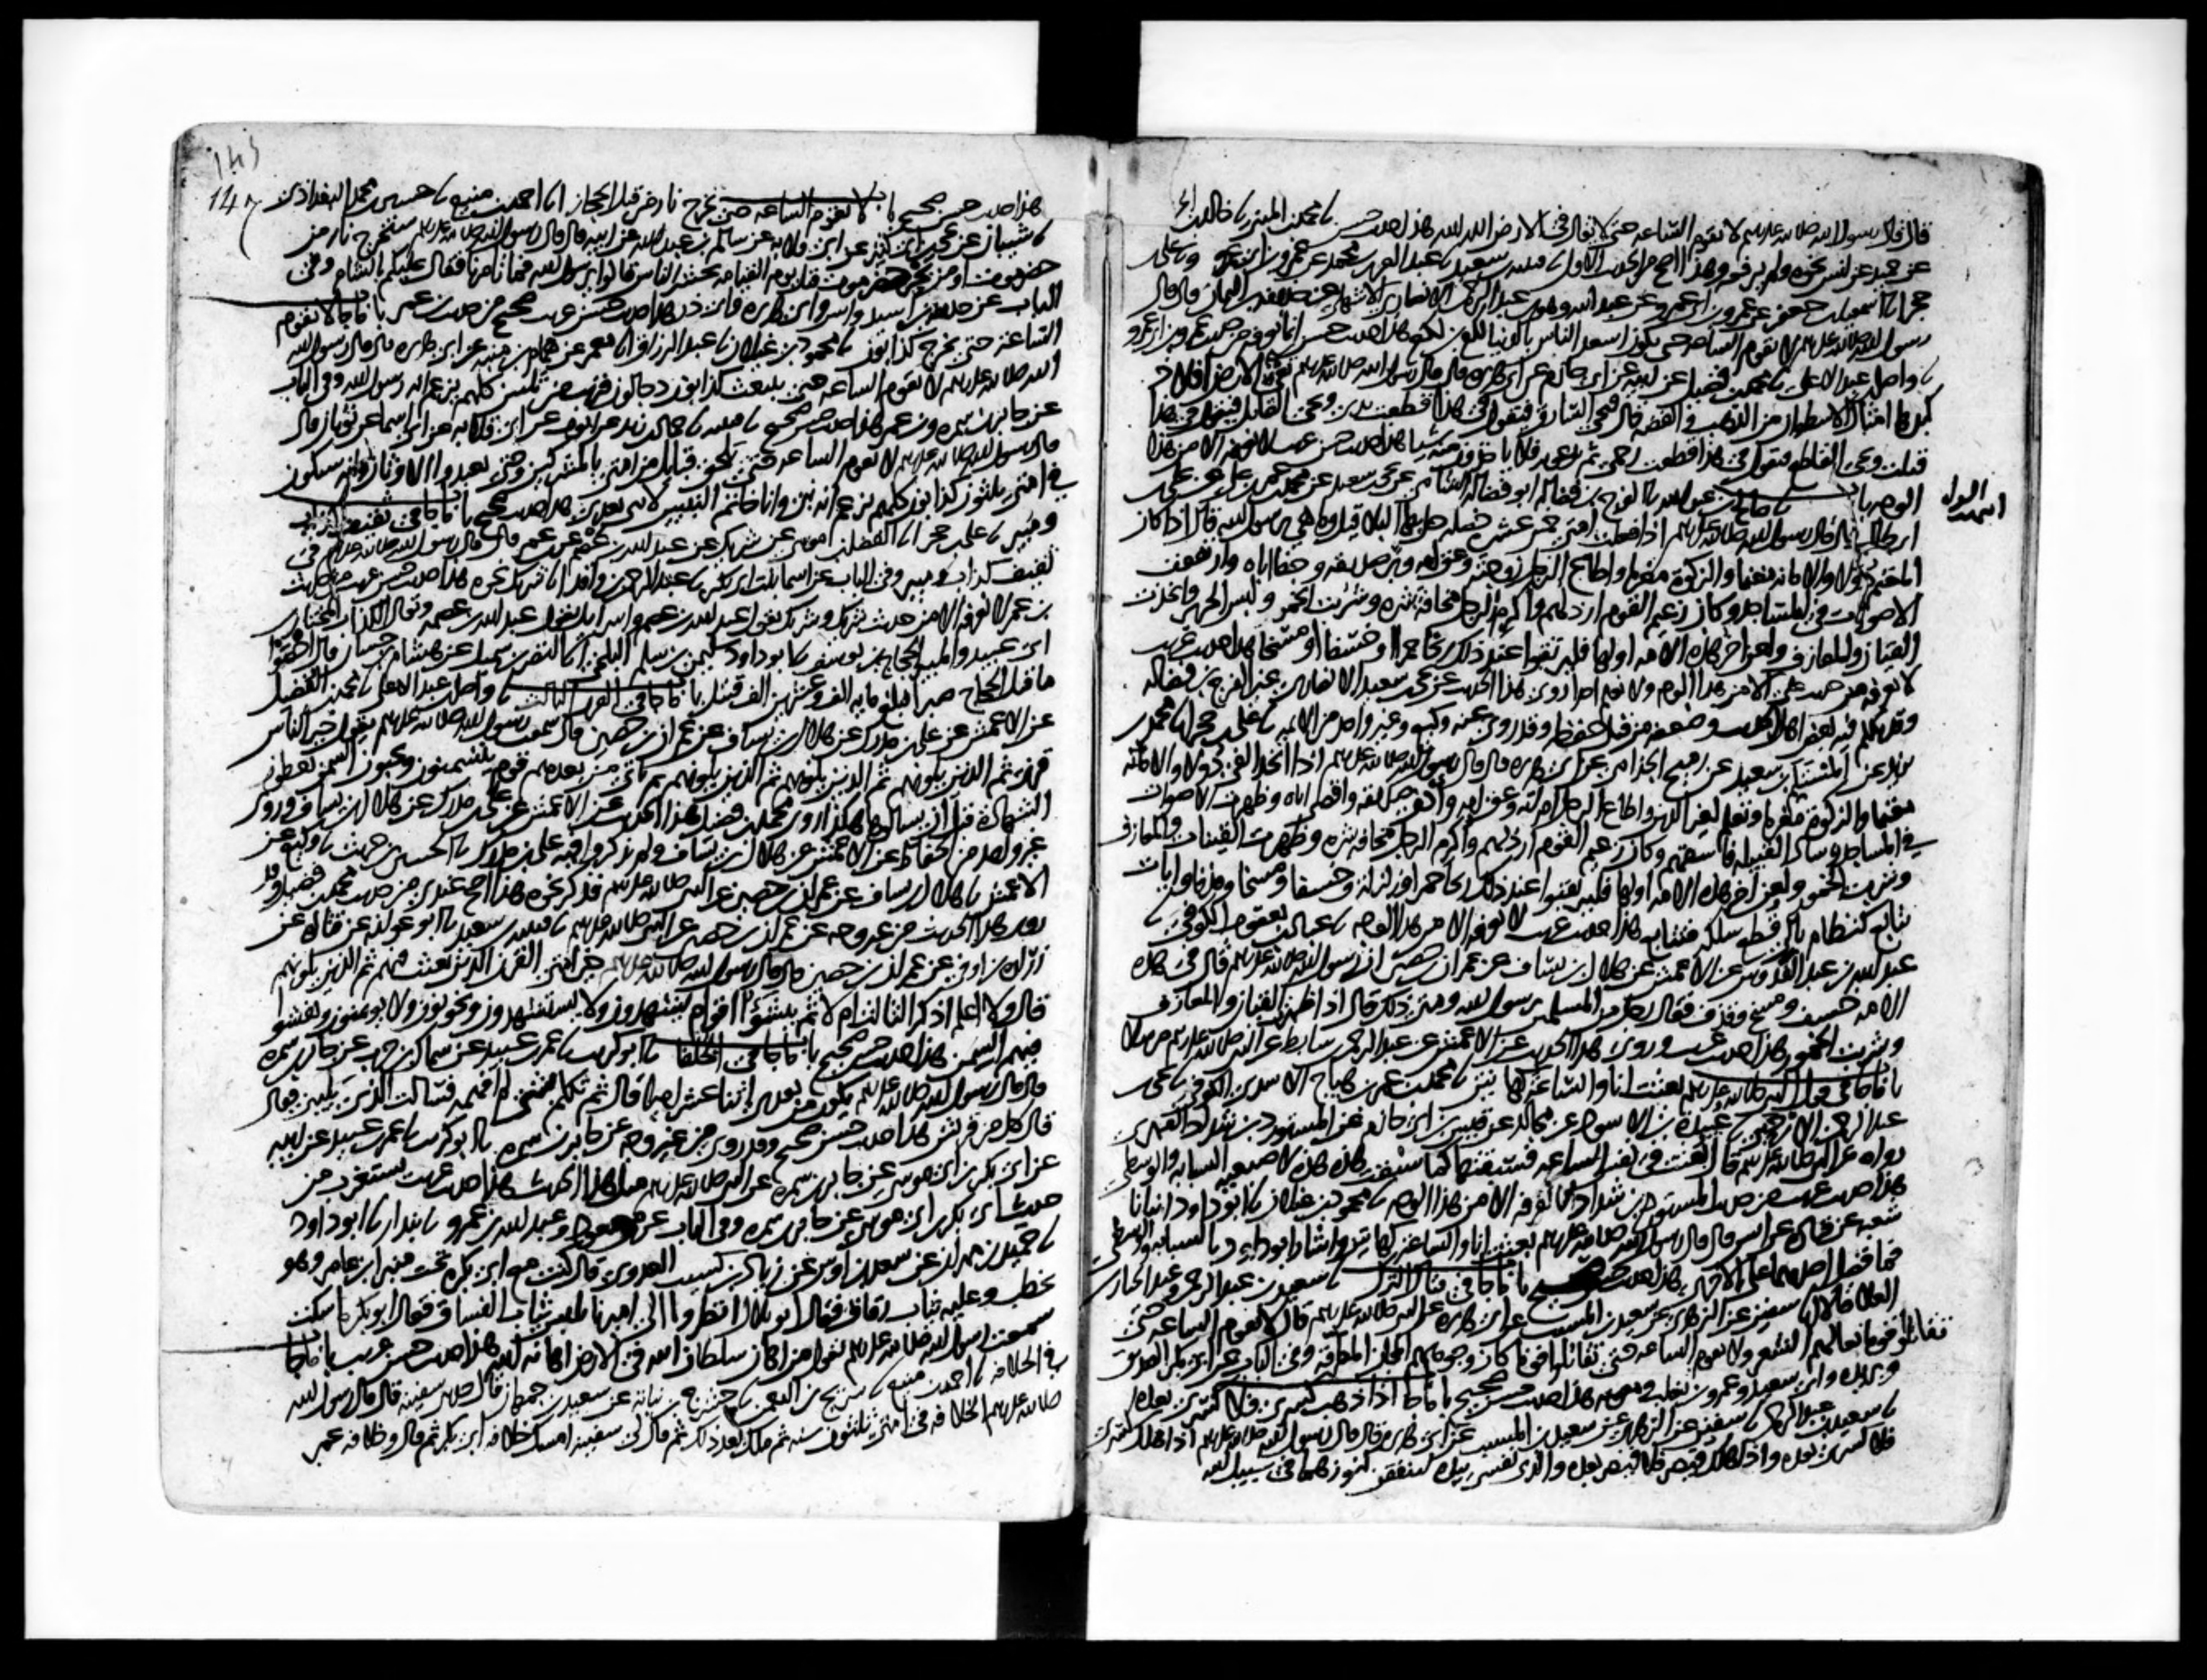 قال قال رسول الله صلى الله عليه وسلم لا تقوم الساعة حتى لا يقال في الارض الله الله هذا حديث حسن نا محمد بن المثنى نا خالد بن الحرث
عن حميد عن انس نحوه ولم يرفعه وهذا اصح من الحديث الاول نا قتيبه بن سعيد نا عبد العزيز بن محمد عن عمرو بن ابي عمرو ونا علي بن
حجر انا اسمعيل بن جعفر عن عمرو بن ابي عمرو عن عبد الله وهو ابن عبد الرحمن الانصاري الاشهلي عن حذيفة بن اليمان قال قال
رسول الله صلى الله عليه وسلم لا تقوم الساعة حتى يكون اسعد الناس بالدنيا لكع بن لكع هذا حديث حسن انما نعرفه من حديث عمرو بن ابي عمرو
نا واصل بن عبد الاعلى نا محمد بن فضيل عن ابيه عن ابي حازم عن ابي هريرة قال قال رسول الله صلى الله عليه وسلم تقئ الارض افلاذ
كبدها امثال الاسطوان من الذهب والفضة قال فيجئ السارق فيقول في هذا قطعت يدي ويجئ القاتل فيقول في هذا
قتلت ويجئ القاطع فيقول في هذا قطعت رحمي ثم يدعونه فلا ياخذون منه شيا هذا حديث حسن غريب لا نعرفه الا من هذا
الوجه باب نا صالح بن عبد الله نا الفرج بن فضاله ابو فضاله الشامي عن يحيى بن سعيد عن محمد بن عمر بن علي عن علي بن
ابي طالب قال قال رسول الله صلى الله عليه وسلم اذا فعلت امتي خمس عشرة خصله حل بها البلا قيل وما هي يرسول الله قال اذا كان
المغنم دولا والامانة مغنما والزكوة مغرما واطاع الرجل زوجته وعق امه وبر صديقه وجفا اباه وارتفعت
الاصوات في المساجد وكان زعيم القوم ارذلهم واكرم الرجل مخافة شره وشربت الخمور ولبس الحرير واتخذت
القيان والمعازف ولعن اخر هذه الامة اولها فليرتقبوا عند ذلك ريحا حمرا او خسفا او مسخا هذا حديث غريب
لا نعرفه من حديث علي الا من هذا الوجه ولا نعلم احدا روى هذا الحديث عن يحيى بن سعيد الانصاري غير الفرج بن فضاله
وقد تكلم فيه بعض اهل الحديث وضعفه من قبل حفظه وقد روى عنه وكيع وغير واحد من الايمة نا علي بن حجر نا محمد بن
يزيد عن المستلم بن سعيد عن رميح الجذامي عن ابي هريرة قال قال رسول الله صلى الله عليه وسلم اذا اتخذ الفئ دولا والامانة
مغنما والزكوة مغرما وتعلم لغير الدين واطاع الرجل امراته وعق امه وادنى صديقه واقصى اباه وظهرت الاصوات
في المساجد وساد القبيله فاسقهم وكان زعيم القوم ارذلهم واكرم الرجل مخافة شره وظهرت القينات والمعازف
وشربت الخمور ولعن اخر هذه الامة اولها فليرتقبوا عند ذلك ريحا حمرا وزلزلة وخسفا ومسخا وقذفا وايات
تتابع كنظام بال قطع سلكه فتتابع هذا حديث غريب لا نعرفه الا من هذا الوجه نا عباد بن يعقوب الكوفي نا
عبد الله بن عبد القدوس عن الاعمش عن هلال بن يساف عن عمران بن حصين ان رسول الله صلى الله عليه وسلم قال في هذه
الامة خسف ومسخ وقذف فقال رجل من المسلمين يرسول الله ومتى ذلك قال اذا ظهرت القيان والمعازف
وشربت الخمور هذا حديث غريب وروي هذا الحديث عن الاعمش عن عبد الرحمن بن سابط عن النبي صلى الله عليه وسلم مرسلا
باب ما جا في قول النبي صلى الله عليه وسلم بعثت انا والساعة كهاتين نا محمد بن عمر بن هياج الاسدي الكوفي نا يحيى بن
عبد الرحمن الارحبي نا عبيدة بن الاسود عن مجالد عن قيس بن ابي حازم عن المستورد بن شداد الفهري
رواه عن النبي صلى الله عليه وسلم قال بعثت في نفس الساعة فسبقتها كما سبقت هذه هذه لاصبعيه السبابه والوسطى
هذا حديث غريب من حديث المستورد بن شداد لا نعرفه الا من هذا الوجه نا محمود بن غيلان نا ابو داود انبانا
شعبه عن قتاده عن انس قال قال رسول الله صلى الله عليه وسلم بعثت انا والساعة كهاتين واشار ابو داود بالسبابه والوسطى
فما فضل احديهما على الاخرى هذا حديث حسن صحيح باب ما جا في قتال الترك نا سعيد بن عبد الرحمن وعبد الجبار بن
العلا قالا نا سفين عن الزهري عن سعيد بن المسيب عن ابي هريرة عن النبي صلى الله عليه وسلم قال لا تقوم الساعة حتى
تقاتلوا قوما نعالهم الشعر ولا تقوم الساعة حتى تقاتلوا قوما كان وجوههم المجان المطرقة وفي الباب عن ابي بكر الصديق
وبريدة وابي سعيد وعمرو بن تغلب ومعوية هذا حديث حسن صحيح باب ما جا اذا ذهب كسرى فلا كسرى بعده
نا سعيد بن عبد الرحمن نا سفين عن الزهري عن سعيد بن المسيب عن ابي هريرة قال قال رسول الله صلى الله عليه وسلم اذا هلك كسرى
فلا كسرى بعده واذا هلك قيصر فلا قيصر بعده والذي نفسي بيده لتنفقن كنوزهما في سبيل الله
147
هذا حديث حسن صحيح باب لا تقوم الساعة حتى تخرج نار من قبل الحجاز انا احمد بن منيع نا حسين بن محمد البغدادي
نا شيبان عن يحيى بن ابي كثير عن ابي قلابه عن سالم بن عبد الله عن ابيه قال قال رسول الله صلى الله عليه وسلم ستخرج نار من
حضرموت او من نحو حضرموت قبل يوم القيامه تحشر الناس قالوا يرسول الله فما تامرنا فقال عليكم بالشام وفي
الباب عن حذيفة بن اسيد وانس وابي هريرة وابي ذر هذا حديث حسن غريب صحيح من حديث ابن عمر باب ما جا لا تقوم
الساعة حتى يخرج كذابون نا محمود بن غيلان نا عبد الرزاق انا معمر عن همام بن منبه عن ابي هريرة قال قال رسول الله
صلى الله عليه وسلم لا تقوم الساعة حتى ينبعث كذابون دجالون قريب من ثلثين كلهم يزعم انه رسول الله وفي الباب
عن جابر بن سمرة وبن عمر هذا حديث حسن صحيح نا قتيبه نا حماد بن زيد عن ايوب عن ابي قلابه عن ابي اسما عن ثوبان قال
قال رسول الله صلى الله عليه وسلم لا تقوم الساعة حتى تلحق قبايل من امتي بالمشركين وحتى يعبدوا الاوثان وانه سيكون
في امتي ثلثون كذابون كلهم يزعم انه نبي وانا خاتم النبيين لا نبي بعدي هذا حديث صحيح باب ما جا في ثقيف كذاب
ومبير نا علي بن حجر انا الفضل بن موسى عن شريك عن عبد الله بن عصم عن ابن عمر قال قال رسول الله صلى الله عليه وسلم في
ثقيف كذاب ومبير وفي الباب عن اسما بنت ابي بكر نا عبد الرحمن بن واقد انا شريك نحوه هذا حديث حسن غريب من حديث
بن عمر لا نعرفه الا من حديث شريك وشريك يقول عبد الله بن عصم واسرايل يقول عبد الله بن عصمه ويقال الكذاب المختار بن
ابي عبيد والمبير الحجاج بن يوسف نا ابو داود سليمن بن سلم البلخي انا النضر بن شميل عن هشام بن حسان قال احصوا
ما قتل الحجاج صبرا فبلغ مايه الف وعشرين الف قتيل باب ما جا في القرن الثالث نا واصل بن عبد الاعلى نا محمد بن الفضيل
عن الاعمش عن علي بن مدرك عن هلال بن يساف عن عمران بن حصين قال سمعت رسول الله صلى الله عليه وسلم يقول خير الناس
قرني ثم الذين يلونهم ثم الذين يلونهم ثم الذين يلونهم ثم ياتي من بعدهم قوم يتسمنون ويحبون السمن يعطون
الشهادة قبل ان يسالوها هكذا روى محمد بن فضيل هذا الحديث عن الاعمش عن علي بن مدرك عن هلال بن يساف وروى
غير واحد من الحفاظ عن الاعمش عن هلال بن يساف ولم يذكروا فيه علي بن مدرك نا الحسين بن حريث نا وكيع عن
الاعمش نا هلال بن يساف عن عمران بن حصين عن النبي صلى الله عليه وسلم فذكر نحوه هذا اصح عندي من حديث محمد بن فضيل وقد
روي هذا الحديث من غير وجه عن عمران بن حصين عن النبي صلى الله عليه وسلم نا قتيبه بن سعيد نا ابو عوانه عن قتاده عن
زراره بن اوفى عن عمران بن حصين قال قال رسول الله صلى الله عليه وسلم خير امتي القرن الذي بعثت فيهم ثم الذين يلونهم
قال ولا اعلم اذكر الثالث ام لا ثم ينشؤ اقوام يشهدون ولا يستشهدون ويخونون ولا يوتمنون ويفشو
فيهم السمن هذا حديث حسن صحيح باب ما جا في الخلفا نا ابو كريب نا عمر بن عبيد عن سماك بن حرب عن جابر بن سمرة
قال قال رسول الله صلى الله عليه وسلم يكون من بعدي اثنا عشر اميرا قال ثم تكلم بشئ لم افهمه فسالت الذي يليني فقال
قال كلهم من قريش هذا حديث حسن صحيح وقد روي من غير وجه عن جابر بن سمرة نا ابو كريب نا عمر بن عبيد عن ابيه
عن ابي بكر بن ابي موسى عن جابر بن سمرة عن النبي صلى الله عليه وسلم مثل هذا الحديث هذا حديث غريب يستغرب من
حديث ابي بكر بن ابي موسى عن جابر بن سمرة وفي الباب عن بن مسعود وعبد الله بن عمرو نا بندار نا ابو داود
نا حميد بن مهران عن سعد بن اوس عن زياد بن كسيب العدوي قال كنت مع ابي بكره تحت منبر ابن عامر وهو
يخطب وعليه ثياب رقاق فقال ابو بلال انظروا الى اميرنا يلبس ثياب الفساق فقال ابو بكرة اسكت
سمعت رسول الله صلى الله عليه وسلم يقول من اهان سلطان الله في الارض اهانه الله هذا حديث حسن غريب باب ما جا
في الخلافه نا احمد بن منيع نا سريج بن النعمن نا حشرج بن نباته عن سعيد بن جمهان قال حدثني سفينه قال قال رسول الله
صلى الله عليه وسلم الخلافه في امتي ثلثون سنه ثم ملك بعد ذلك ثم قال لي سفينه امسك خلافه ابي بكر ثم قال وخلافه عمر